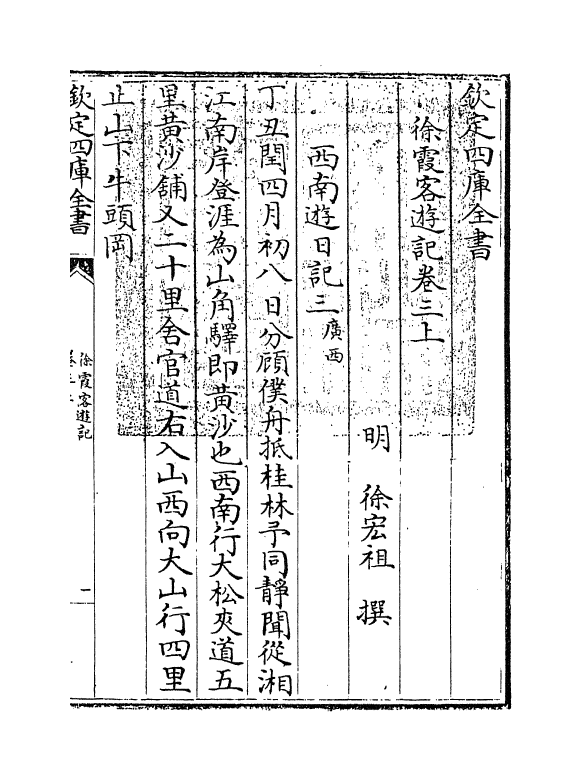 欽定四庫全書
徐霞客遊記卷三上
明 徐宏祖 撰
西南遊日記三廣西
丁丑閏四月初八日分顧僕舟抵桂林予同靜聞從湘
江南岸登涯為山角驛即黃沙也西南行大松夾道五
里黃沙舖又二十里舍官道右入山西向大山行四里
止山下牛頭岡
欽定四庫全書
徐霞客遊記